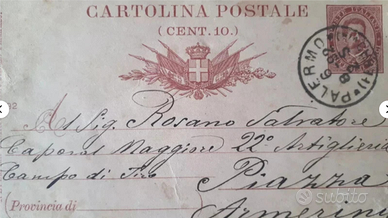 CARTOLINA POSTALE
(CENT. 10.)
PALERMO
Al Sig. Rosano Salvatore
Caporal Maggiore 22° Artiglieria
Campo di Tiro
Piazza
Armerin
Provincia di
subito